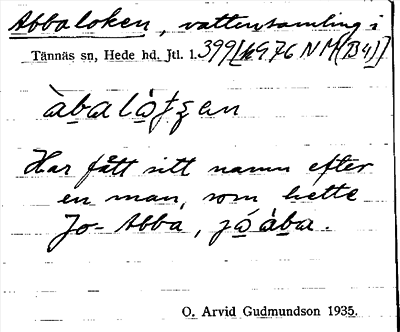 Abbaloken, vattensamling i
Tännäs sn, Hede hd. Jtl. l. 399[k976 NM(B4)]
àbalo̱tʃen
Har fått sitt namn efter
en man, som hette
Jo-Abba, jó̱ àba.
O. Arvid Gudmundson 1935.